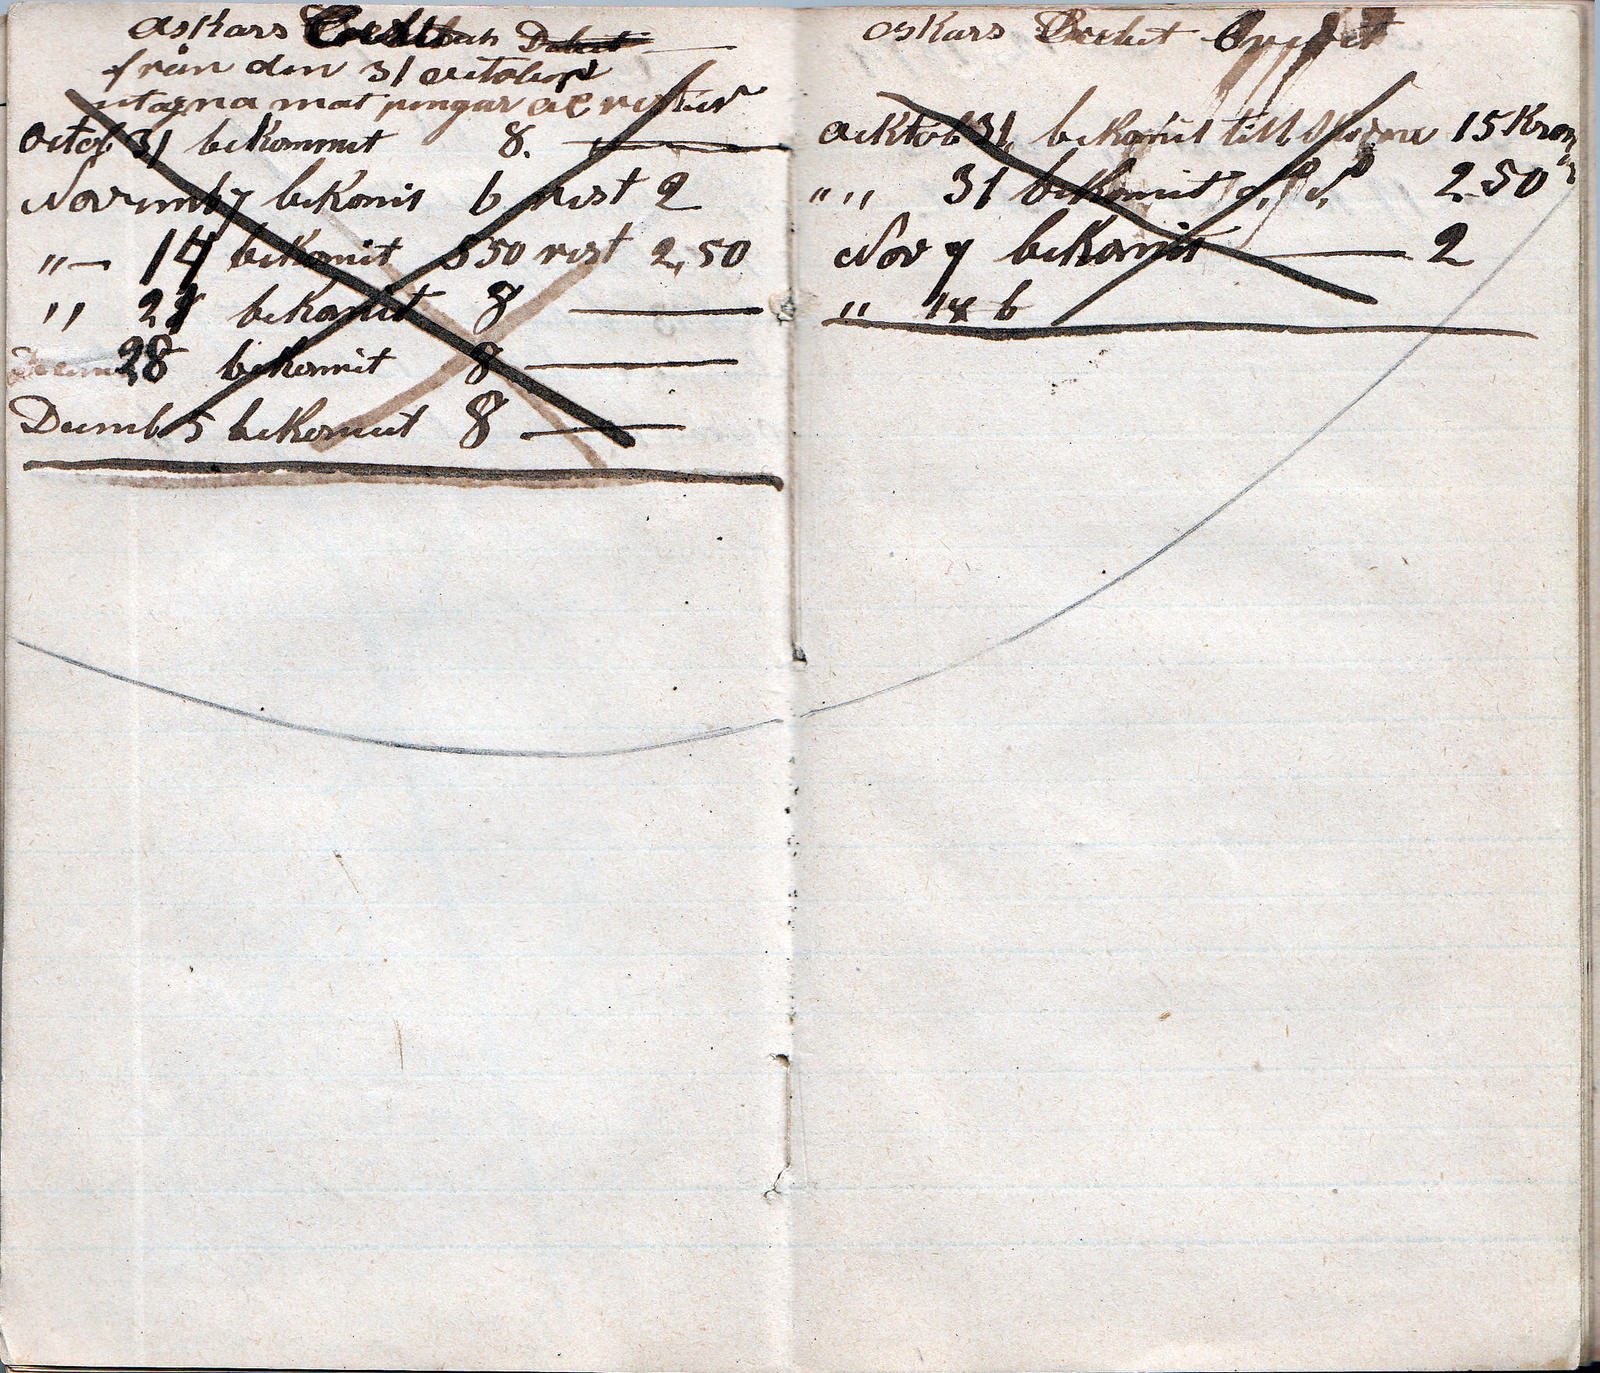 oskars Debet
från den 31 october
utagna mat pengar
octob 31 bekommit 8.
Novemb 7 bekomit 6 rest 2
"— 14 bekomit 5 50 rest 2,50
" 21 bekomit 8
28 bekomit 8
Decemb 5 bekomit 8
oskars Credit
octktob 31 bekomit till 15 Kron
" " 31 bekomit 2.50
Nov 7 bekomit 2
" 14 6